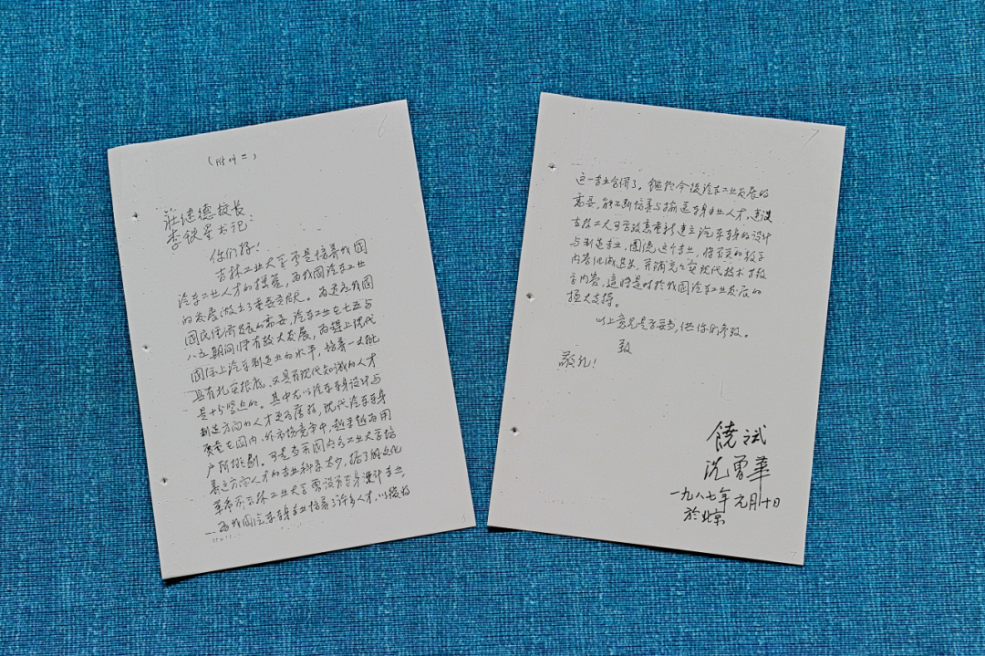 6
(附件二)
莊達德校长
李铁瑩书记:
你们好!
吉林工业大学早是培养我国
汽车工业人才的摇篮,为我国汽车工业
的发展做出了重要贡献。为适应我国
国民经济发展的需要,汽车工业在七五与
八五期间将有较大发展,为赶上现代
国际上汽车制造业的水平,培养一大批
具有扎实根底,又具有现代知识的人才
是十分紧迫的。其中尤以汽车车身设计与
制造方向的人才更为薄弱,现代汽车车身
质量在国内、外市场竞争中,越来越为用
户所挑剔。可是当前国内各工业大学培
养这方向人才的专业科系太少,据了解文化
革命前吉林工业大学曾设有车身设计专业,
为我国汽车车身专业培养了许多人才,以後好
7
这一专业合併了。鉴于今後汽车工业发展的
需要,能不断培养与输送车身专业人才,建议
吉林工大可否考虑重新建立汽车车身的设计
与制造专业,围绕这个专业,将当前的教学
内容化做基装,再补充
内容,这将是对我国汽车工业发展的
极大支持。
以上意见是否妥当,供你们参考。
致
敬礼!
饒斌
沈曾華
一九八七年元月十日
於北京